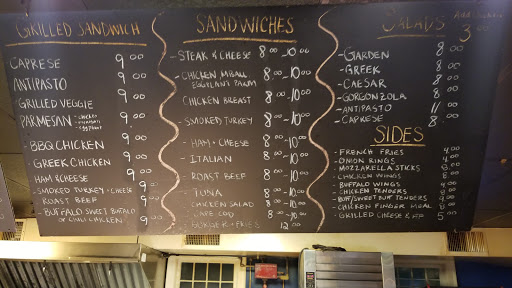 GRILLED SANDWICH
CAPRESE 9.00
ANTIPASTO 9.00
GRILLED VEGGIE 9.00
PARMESAN - CHICKEN 9.00
EGGPLANT
BBQ CHICKEN 9.00
GREEK CHICKEN 9.00
HAM & CHEESE 9.00
SMOKED TURKEY + CHEESE 9.00
ROAST BEEF 9.00
- BUFFALO SWEET BUFFALO 9.00
OR CHILI CHICKEN
SANDWICHES
- STEAK & CHEESE 8.00 - 10.00
- CHICKEN MBALL 8.00 - 10.00
EGGPLANT PARM
CHICKEN BREAST 8.00 - 10.00
- SMOKED TURKEY 8.00 - 10.00
- HAM + CHEESE 8.00 - 10.00
- ITALIAN 8.00 - 10.00
- ROAST BEEF 8.00 - 10.00
- TUNA 8.00 - 10.00
- CHICKEN SALAD 8.00 - 10.00
- CAPE COD 8.00 - 10.00
- BURGER + FRIES 12.00
SALADS
Add Chicken
3.00
- GARDEN 8.00
- GREEK 8.00
- CAESAR 8.00
- GORGONZOLA 8.00
- ANTIPASTO 11.00
- CAPRESE 8.00
SIDES
- FRENCH FRIES 4.00
- ONION RINGS 4.00
- MOZZARELLA STICKS 5.00
- CHICKEN WINGS
- BUFFALO WINGS
- CHICKEN TENDERS
- BUFF/SWEET BUFF TENDERS 9.00
- CHICKEN FINGER MEAL 9.00
- GRILLED CHEESE & FF 5.00